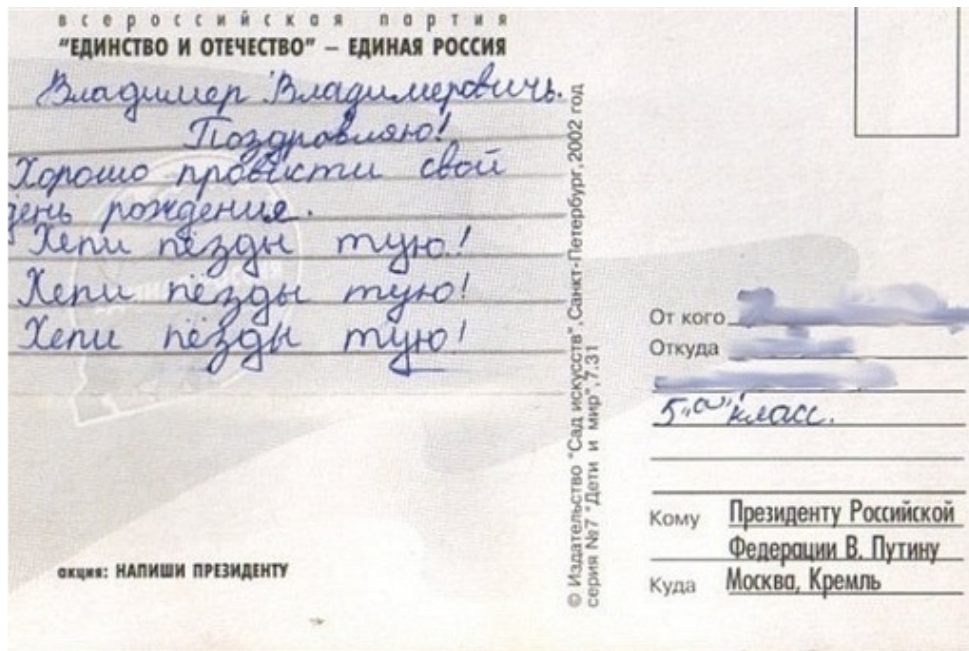 всероссийская партия
"ЕДИНСТВО И ОТЕЧЕСТВО" – ЕДИНАЯ РОССИЯ
Владимер Владимеровичь.
Поздровляю!
Хорошо провисти свой
день рождение.
Хепи пёзды тую!
Хепи пёзды тую!
Хепи пёзды тую!
акция: НАПИШИ ПРЕЗИДЕНТУ
© Издательство "Сад искусств", Санкт-Петербург, 2002 год
серия №7 "Дети и мир", 7.31
От кого
Откуда
5 "а" класс.
Кому Президенту Российской
Федерации В. Путину
Куда Москва, Кремль